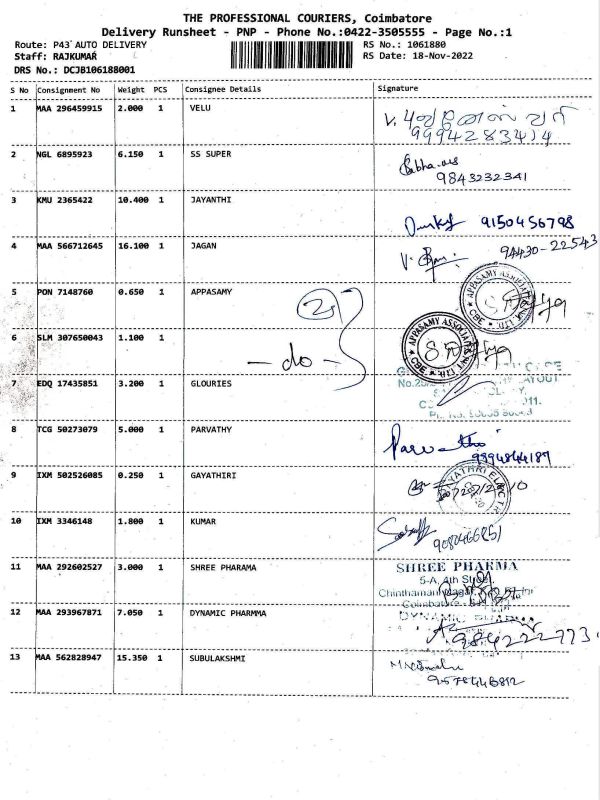 THE PROFESSIONAL COURIERS, Coimbatore
Delivery Runsheet - PNP - Phone No.:0422-3505555 - Page No.:1
Route: P43 AUTO DELIVERY RS No.: 1061880
Staff: RAJKUMAR RS Date: 18-Nov-2022
DRS No.: DCJB106188001
S No Consignment No Weight PCS Consignee Details Signature
1 MAA 296459915 2.000 1 VELU V.
9994283414
2 NGL 6895923 6.150 1 SS SUPER
9843232341
3 KMU 2365422 10.400 1 JAYANTHI 9150456798
4 MAA 566712645 16.100 1 JAGAN 94430-22543
5 PON 7148760 0.650 1 APPASAMY APPASAMY ASSOCIATES CBE
6 SLM 307650043 1.100 1 - do - APPASAMY ASSOCIATES CBE
7 EDQ 17435851 3.200 1 GLOURIES
8 TCG 50273079 5.000 1 PARVATHY Parvathi
9994844189
9 IXM 502526085 0.250 1 GAYATHIRI
10 IXM 3346148 1.800 1 KUMAR
11 MAA 292602527 3.000 1 SHREE PHARAMA SHREE PHARMA
5-A, 4th Street
Coimbatore
12 MAA 293967871 7.050 1 DYNAMIC PHARMMA DYNAMIC
9842222773
13 MAA 562828947 15.350 1 SUBULAKSHMI